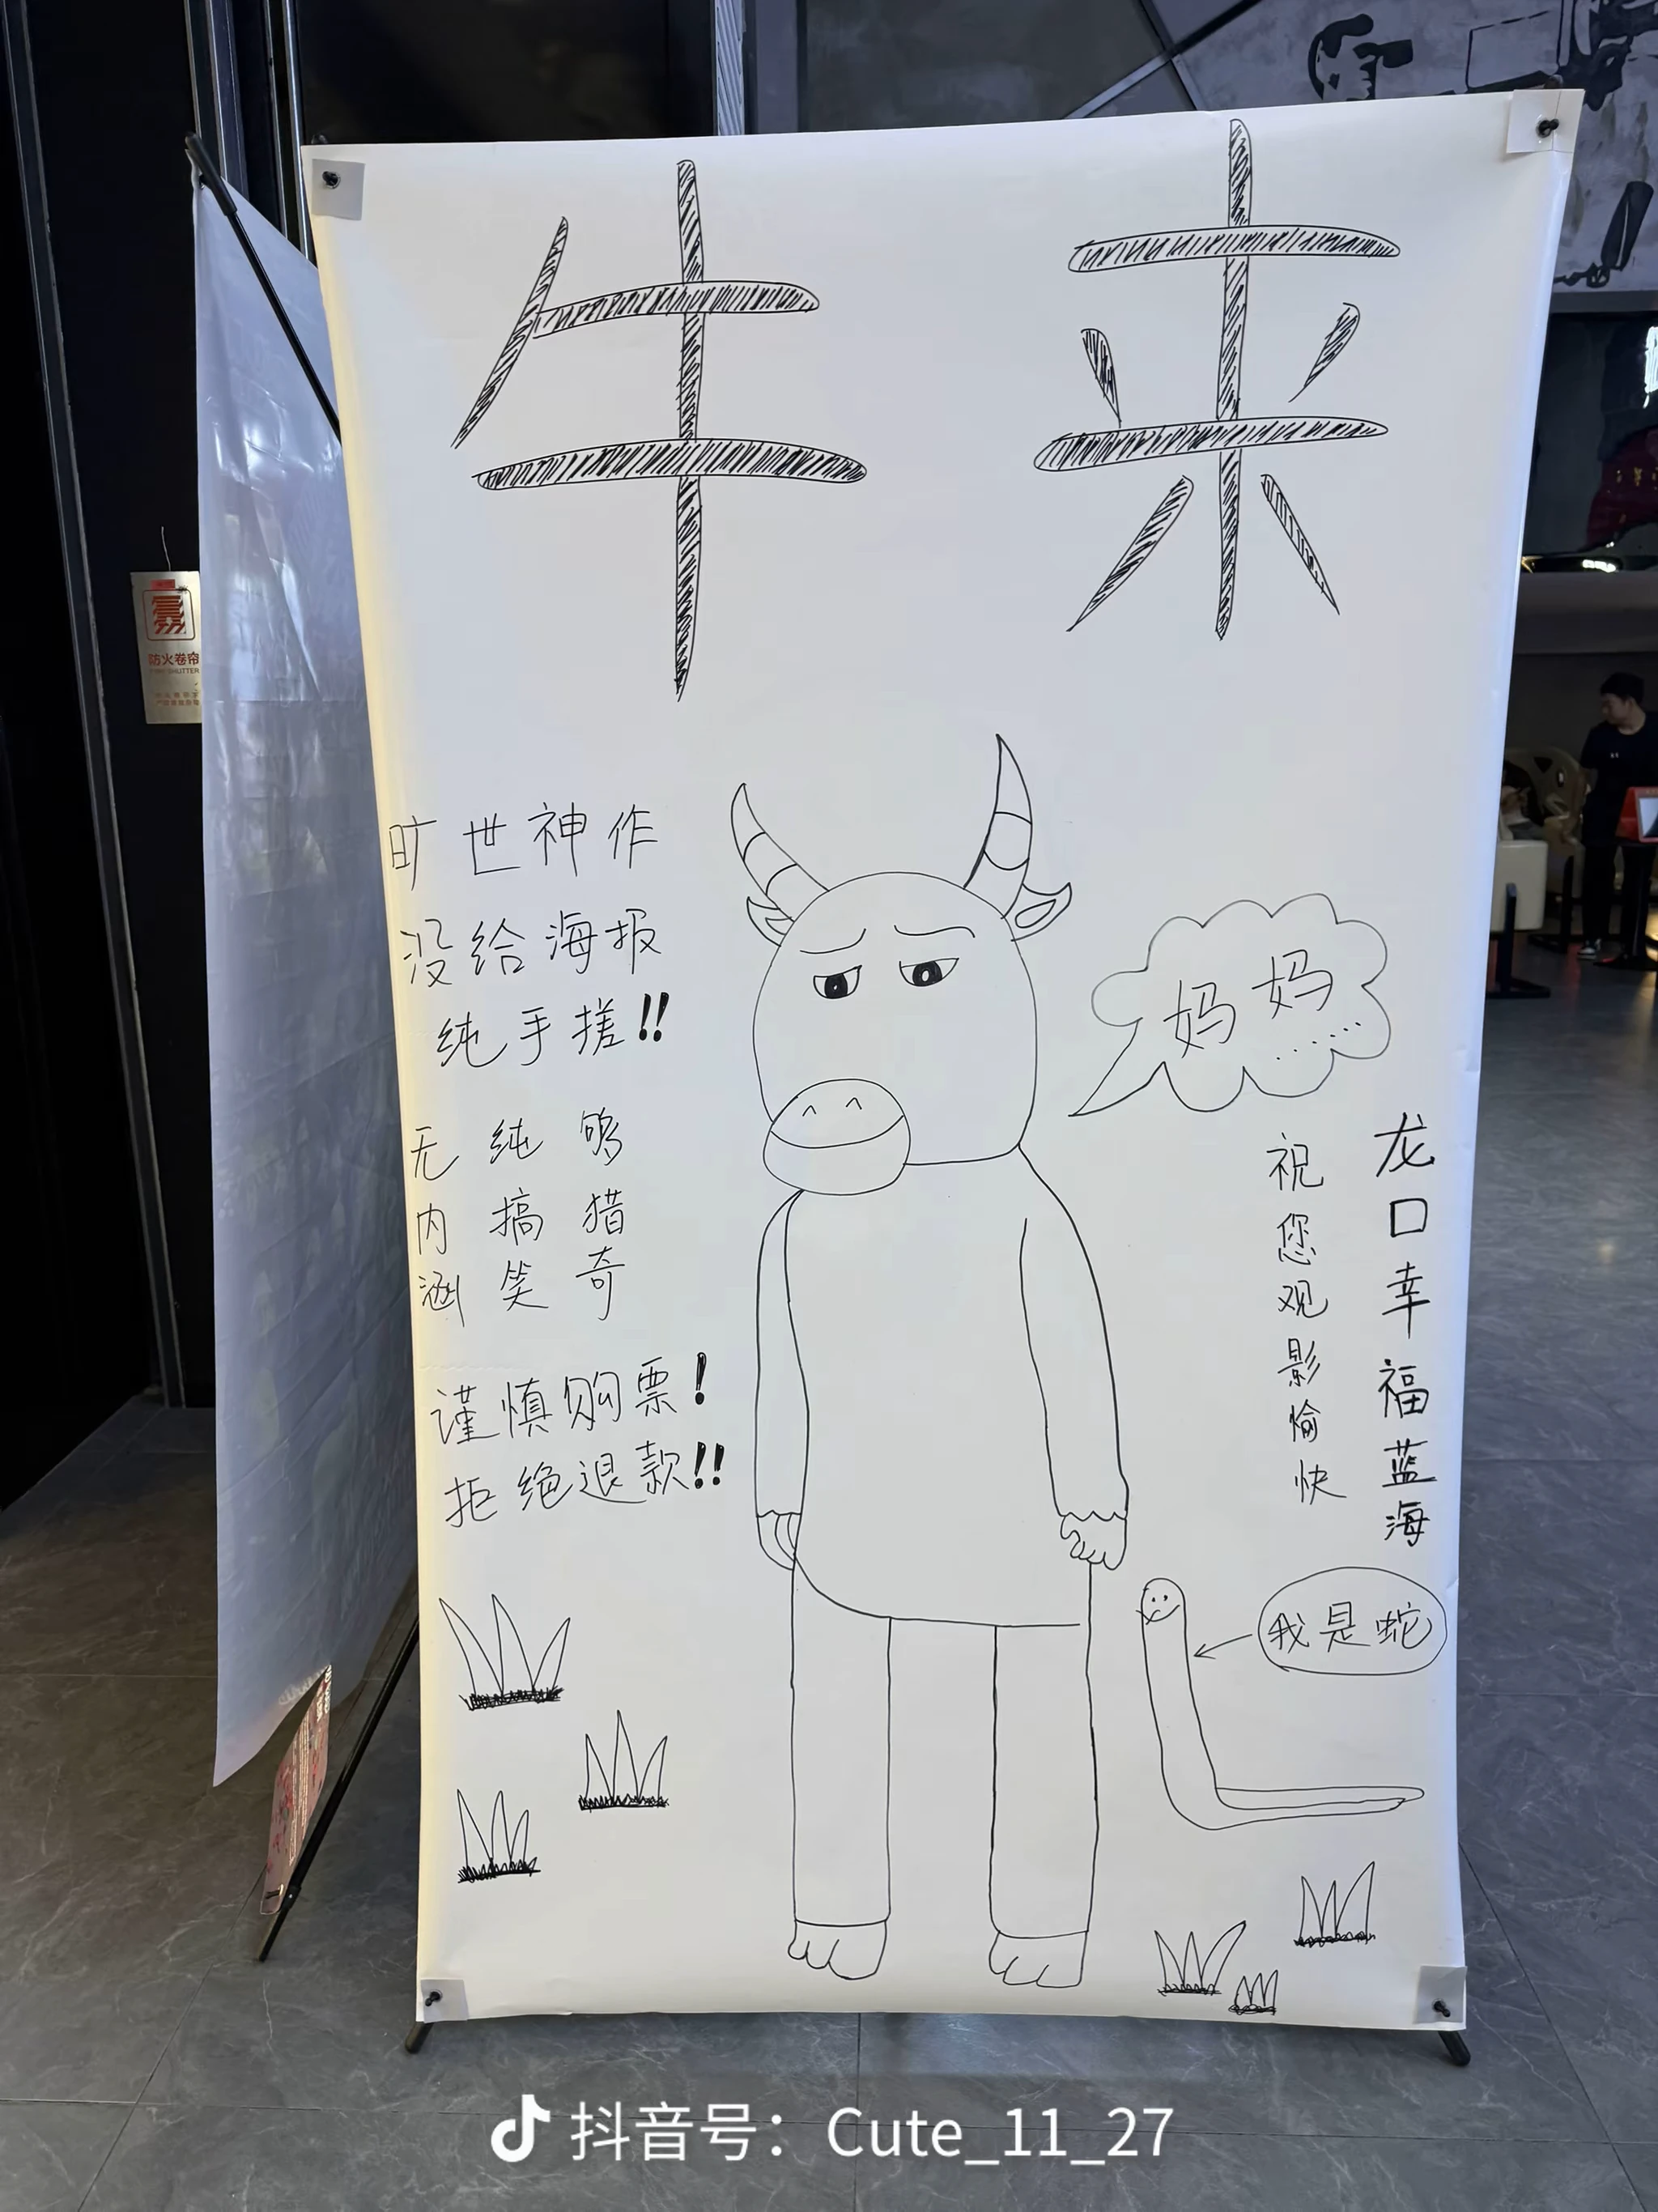 牛来
旷世神作
没给海报
纯手搓!!
无内涵
纯搞笑
够猎奇
谨慎购票!
拒绝退款!!
妈妈……
龙口幸福蓝海
祝您观影愉快
我是蛇
防火卷帘
抖音号：Cute_11_27